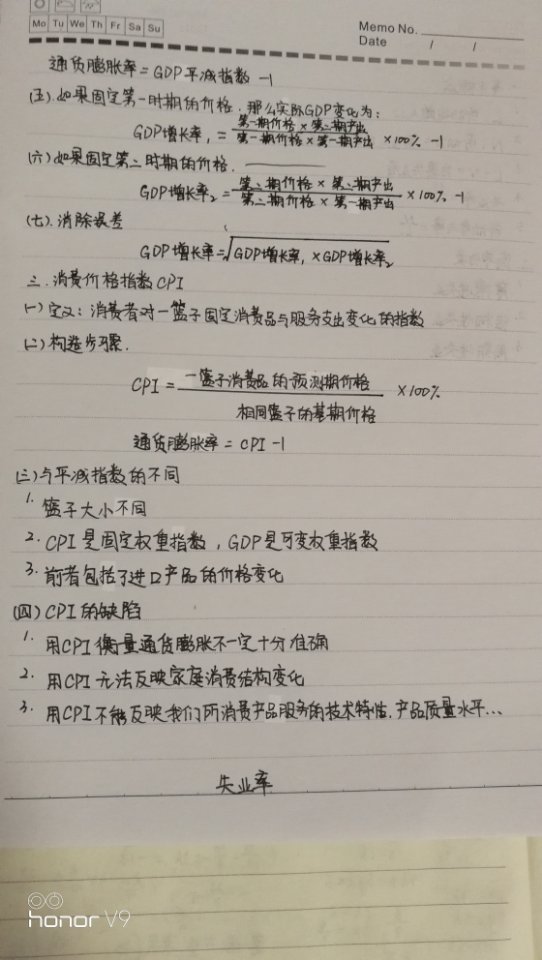 Mo Tu We Th Fr Sa Su
Memo No.
Date / /
通货膨胀率=GDP平减指数-1
(五).如果固定第一时期的价格,那么实际GDP变化为:
GDP增长率₁ = 第一期价格×第二期产出 / 第一期价格×第一期产出 ×100% -1
(六)如果固定第二时期的价格,
GDP增长率₂ = 第二期价格×第二期产出 / 第二期价格×第一期产出 ×100% -1
(七).消除误差
GDP增长率=√GDP增长率₁×GDP增长率₂
三.消费价格指数CPI
(一)定义:消费者对一篮子固定消费品与服务支出变化的指数
(二)构造步骤.
CPI = 一篮子消费品的预测期价格 / 相同篮子的基期价格 ×100%
通货膨胀率=CPI-1
(三)与平减指数的不同
1.篮子大小不同
2.CPI是固定权重指数,GDP是可变权重指数
3.前者包括了进口产品的价格变化
(四)CPI的缺陷
1.用CPI衡量通货膨胀不一定十分准确
2.用CPI无法反映家庭消费结构变化
3.用CPI不能反映我们所消费产品服务的技术特性.产品质量水平...
失业率
honor V9